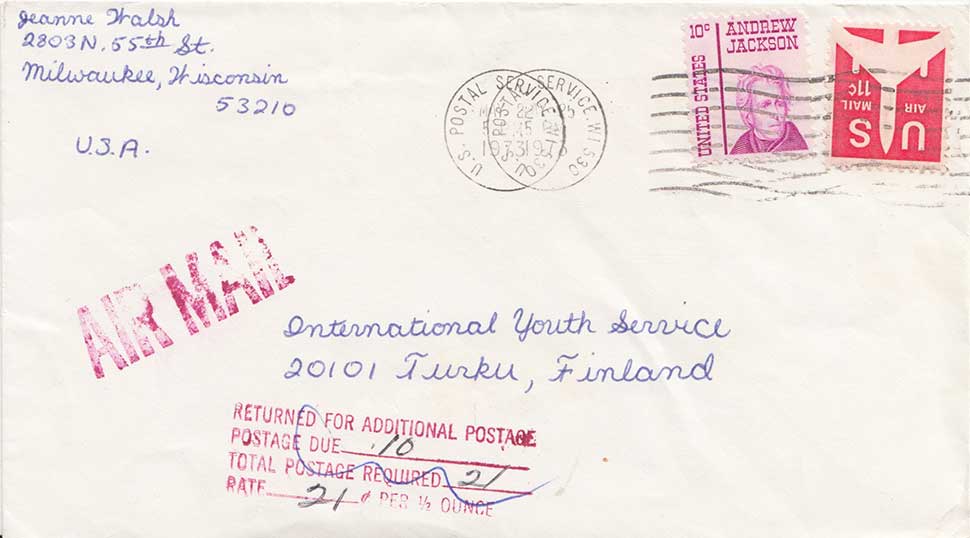 Jeanne Walsh
2803 N. 55th St.
Milwaukee, Wisconsin
53210
U.S.A.
U.S. POSTAL SERVICE
SERVICE WI 530
1973
10¢ ANDREW JACKSON
UNITED STATES
US
AIR MAIL 11¢
AIR MAIL
International Youth Service
20101 Turku, Finland
RETURNED FOR ADDITIONAL POSTAGE
POSTAGE DUE .10
TOTAL POSTAGE REQUIRED 21
RATE 21 ¢ PER ½ OUNCE